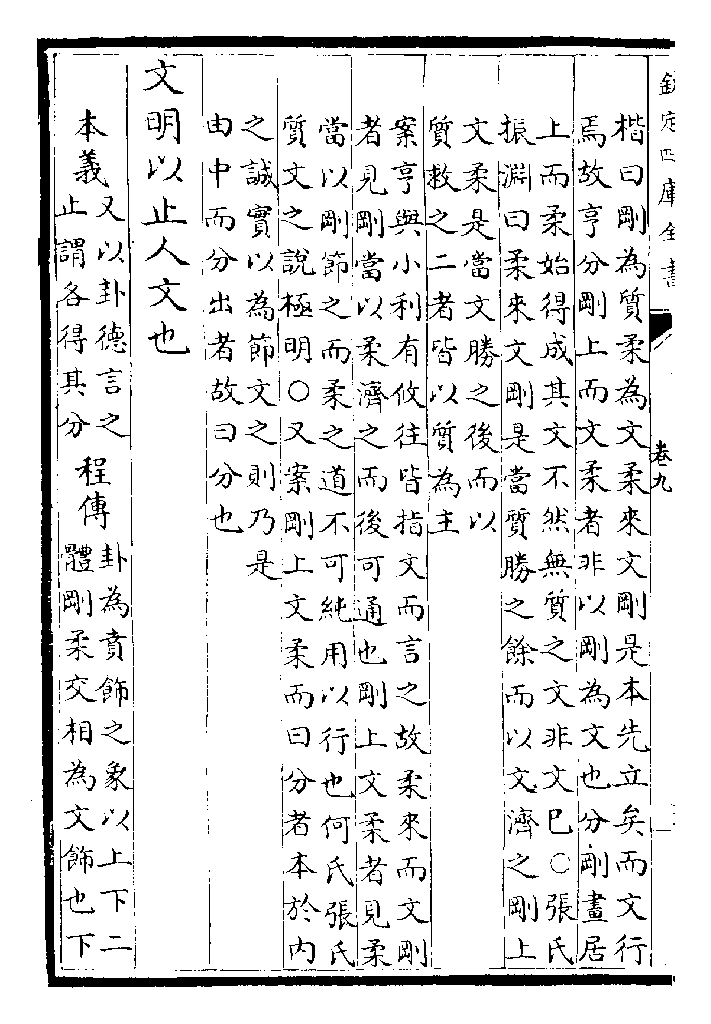 欽定四庫全書
卷九
楷曰剛為質柔為文柔來文剛是本先立矣而文行
焉故亨分剛上而文柔者非以剛為文也分剛畫居
上而柔始得成其文不然無質之文非文巳○張氏
振淵曰柔來文剛是當質勝之餘而以文濟之剛上
文柔是當文勝之後而以
質救之二者皆以質為主
案亨與小利有攸往皆指文而言之故柔來而文剛
者見剛當以柔濟之而後可通也剛上文柔者見柔
當以剛節之而柔之道不可純用以行也何氏張氏
質文之說極明○又案剛上文柔而曰分者本於內
之誠實以為節文之則乃是
由中而分出者故曰分也
文明以止人文也
本義
又以卦德言之
止謂各得其分
程傳
卦為賁飾之象以上下二
體剛柔交相為文飾也下